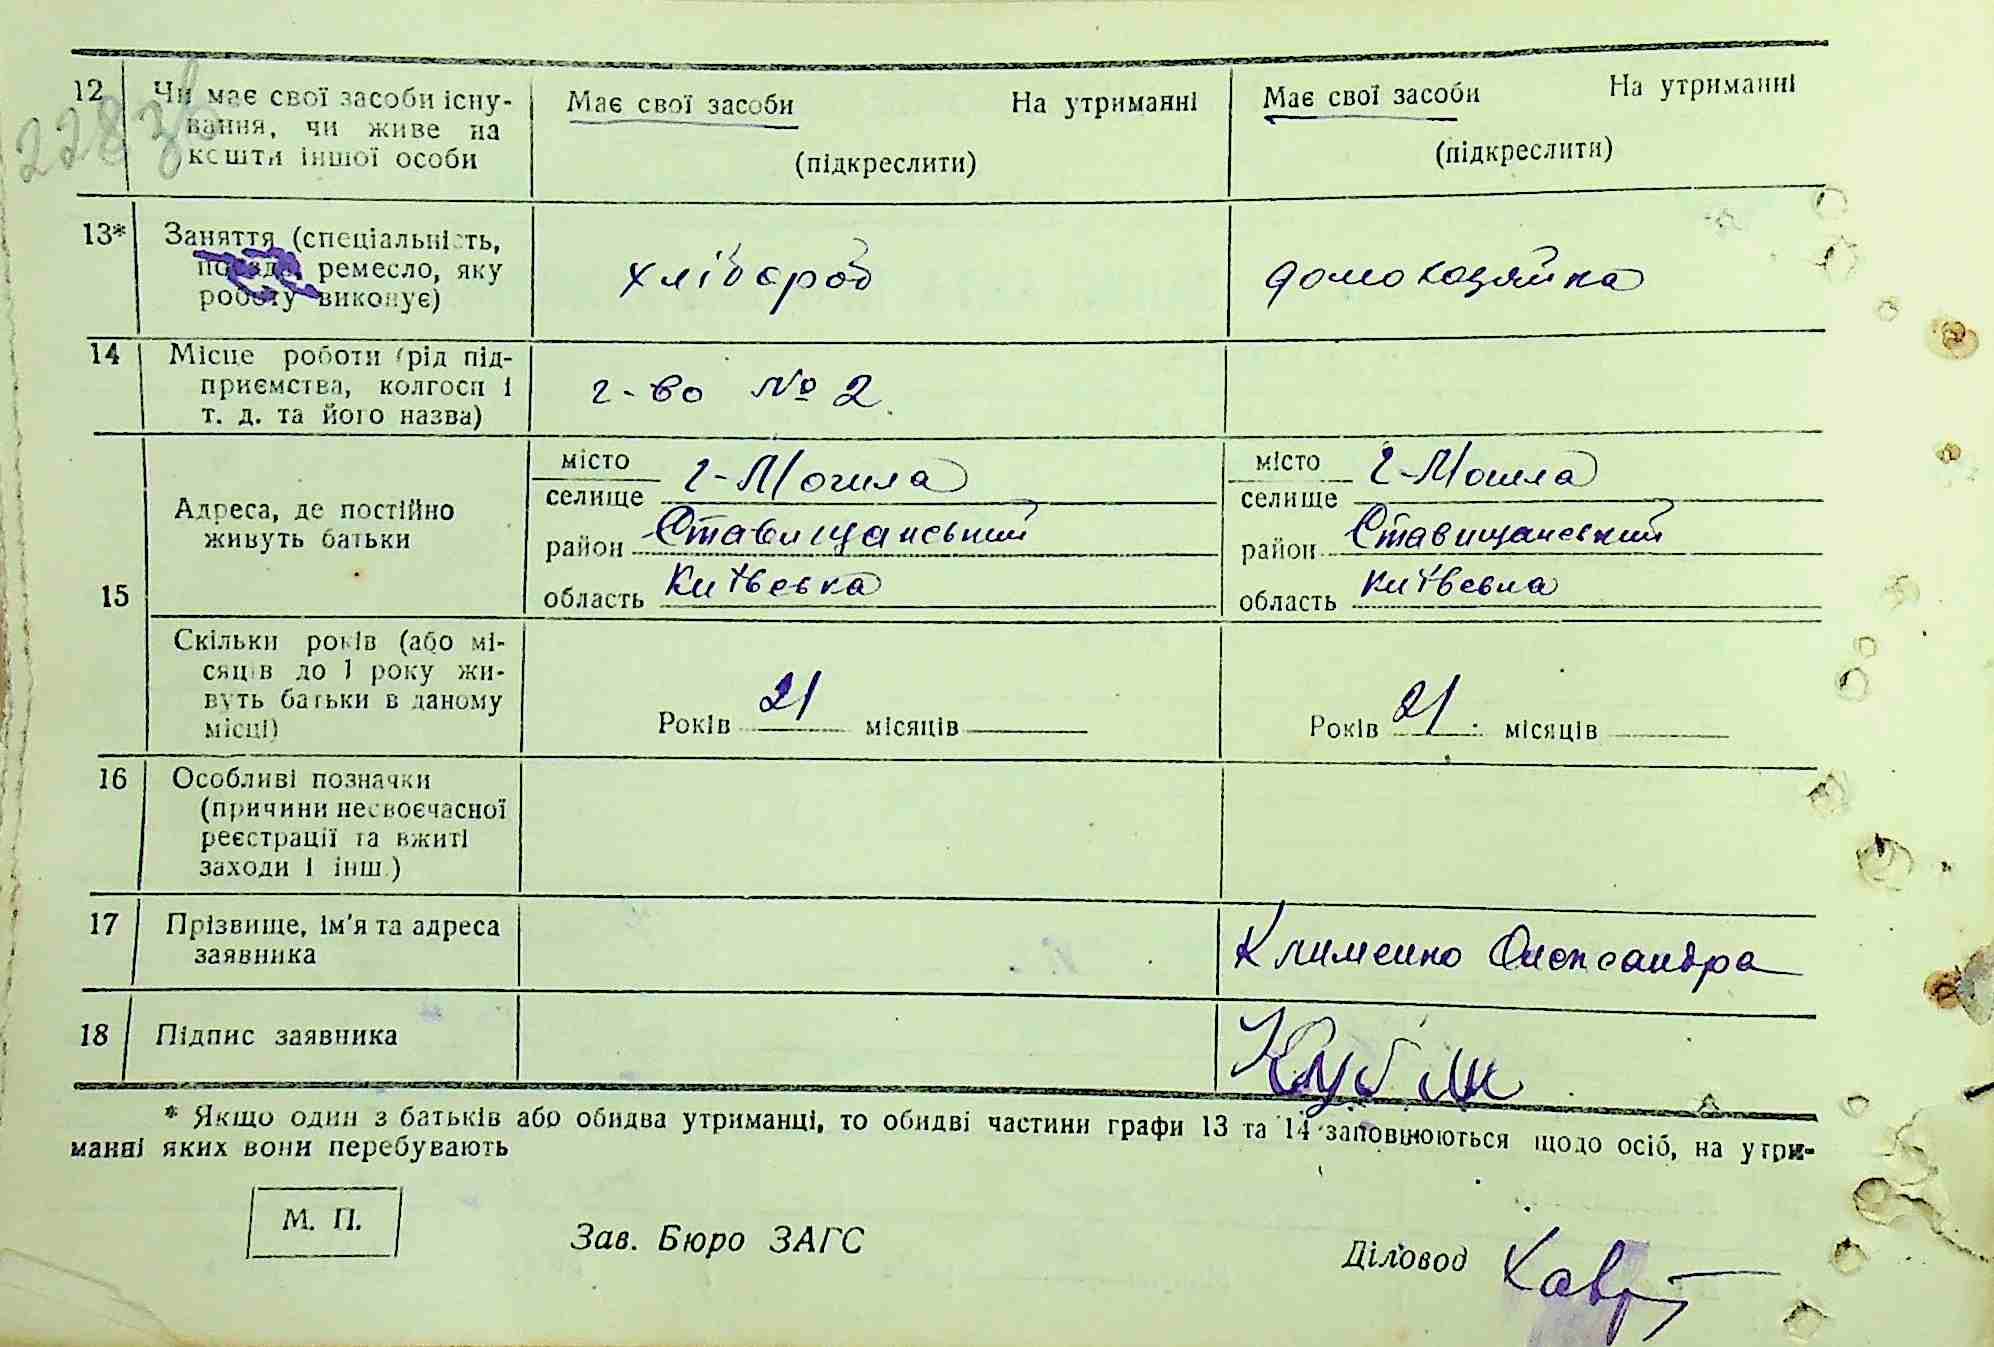 228зв
12 Чи має свої засоби існу-
вання, чи живе на
кошти іншої особи
Має свої засоби На утриманні
(підкреслити)
Має свої засоби На утриманні
(підкреслити)
13* Заняття (спеціальність,
посада, ремесло, яку
роботу виконує)
хлібороб
домохазяйка
14 Місце роботи (рід під-
приємства, колгосп і
т. д. та його назва)
г-во № 2
15
Адреса, де постійно
живуть батьки
місто
селище Г-Могила
район Ставищанський
область Київська
місто
селище Г-Могила
район Ставищанський
область Київська
Скільки років (або мі-
сяців до 1 року жи-
вуть батьки в даному
місці)
Років 21 місяців
Років 21 місяців
16 Особливі позначки
(причини несвоєчасної
реєстрації та вжиті
заходи і інш.)
17 Прізвище, ім'я та адреса
заявника
Клименко Олександра
18 Підпис заявника
* Якщо один з батьків або обидва утриманці, то обидві частини графи 13 та 14 заповнюються щодо осіб, на утри-
манні яких вони перебувають
М. П.
Зав. Бюро ЗАГС
Діловод